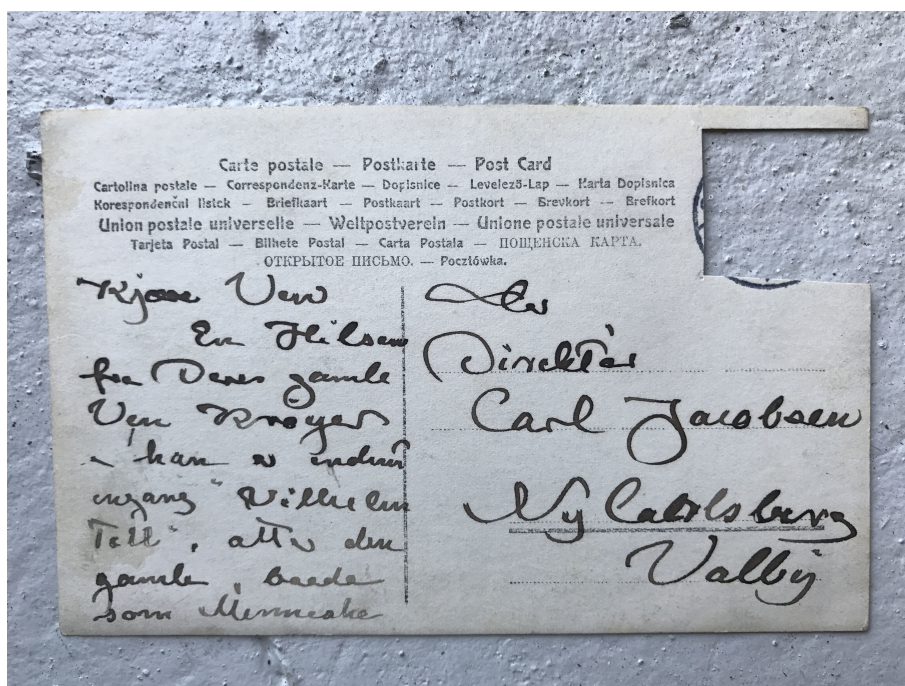 Carte postale — Postkarte — Post Card
Cartolina postale — Correspondenz-Karte — Dopisnice — Levelező-Lap — Karta Dopisnica
Korespondenčni listek — Briefkaart — Postkaart — Postkort — Brevkort — Brefkort
Union postale universelle — Weltpostverein — Unione postale universale
Tarjeta Postal — Bilhete Postal — Carta Postala — ПОЩЕНСКА КАРТА.
ОТКРЫТОЕ ПИСЬМО. — Pocztówka.
Kjære Ven
En Hilsen
fra Deres gamle
Ven Krøyer
kan endnu
engang "Vilhelm
Tell", den
gamle, baade
som Menneske
Direktør
Carl Jacobsen
Ny Carlsberg
Valby